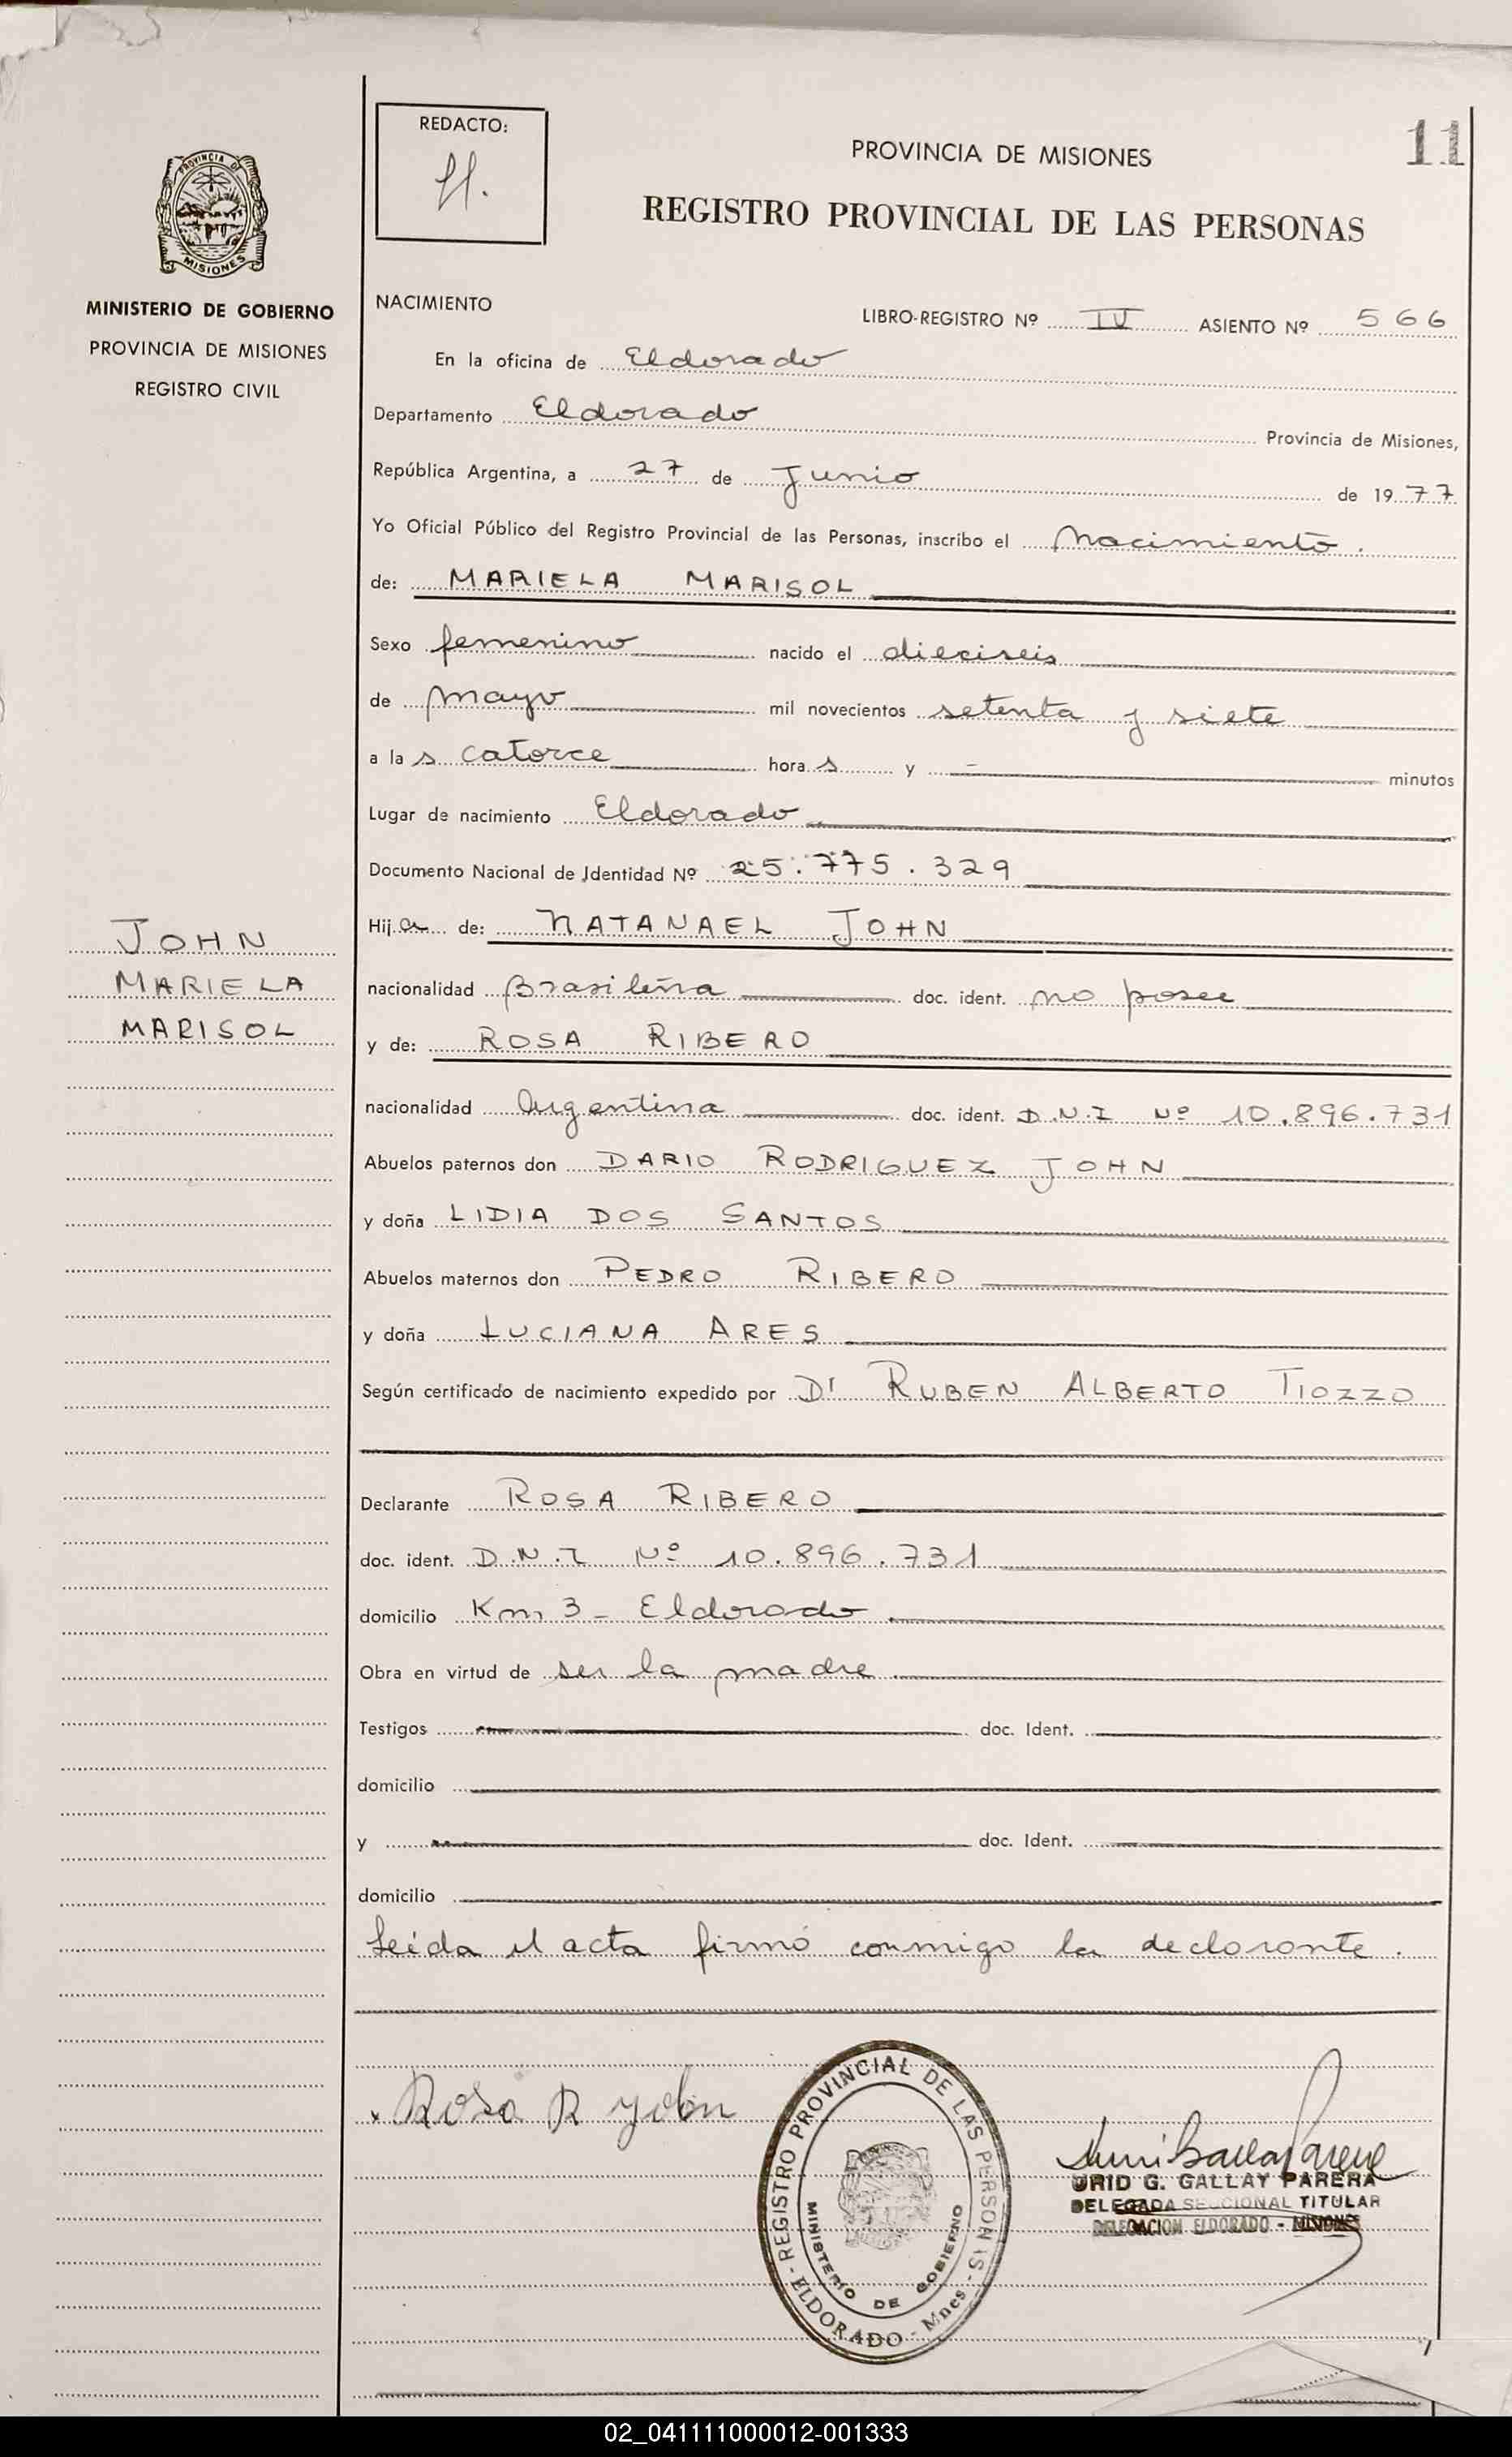 REDACTO:
PROVINCIA DE MISIONES
11
REGISTRO PROVINCIAL DE LAS PERSONAS
PROVINCIA DE
MISIONES
MINISTERIO DE GOBIERNO
PROVINCIA DE MISIONES
REGISTRO CIVIL
NACIMIENTO
LIBRO-REGISTRO Nº IV ASIENTO Nº 566
En la oficina de Eldorado
Departamento Eldorado Provincia de Misiones,
República Argentina, a 27 de Junio de 1977
Yo Oficial Público del Registro Provincial de las Personas, inscribo el Nacimiento.
de: MARIELA MARISOL
Sexo femenino nacido el dieciseis
de mayo mil novecientos setenta y siete
a las catorce horas y - minutos
Lugar de nacimiento Eldorado
Documento Nacional de Identidad Nº 25.775.329
JOHN
MARIELA
MARISOL
Hija de: NATANAEL JOHN
nacionalidad Brasileña doc. ident. no posee
y de: ROSA RIBERO
nacionalidad Argentina doc. ident. D.N.I Nº 10.896.731
Abuelos paternos don DARIO RODRIGUEZ JOHN
y doña LIDIA DOS SANTOS
Abuelos maternos don PEDRO RIBERO
y doña LUCIANA ARES
Según certificado de nacimiento expedido por Dr RUBEN ALBERTO TIOZZO
Declarante ROSA RIBERO
doc. ident. D.N.I Nº 10.896.731
domicilio Km 3 - Eldorado
Obra en virtud de ser la madre
Testigos doc. Ident.
domicilio
y doc. Ident.
domicilio
Leida el acta firmó conmigo la declarante.
Rosa R John
REGISTRO PROVINCIAL DE LAS PERSONAS
MINISTERIO DE GOBIERNO
ELDORADO - Mnes
URID G. GALLAY PARERA
DELEGADA SECCIONAL TITULAR
DELEGACION ELDORADO - MISIONES
02_041111000012-001333